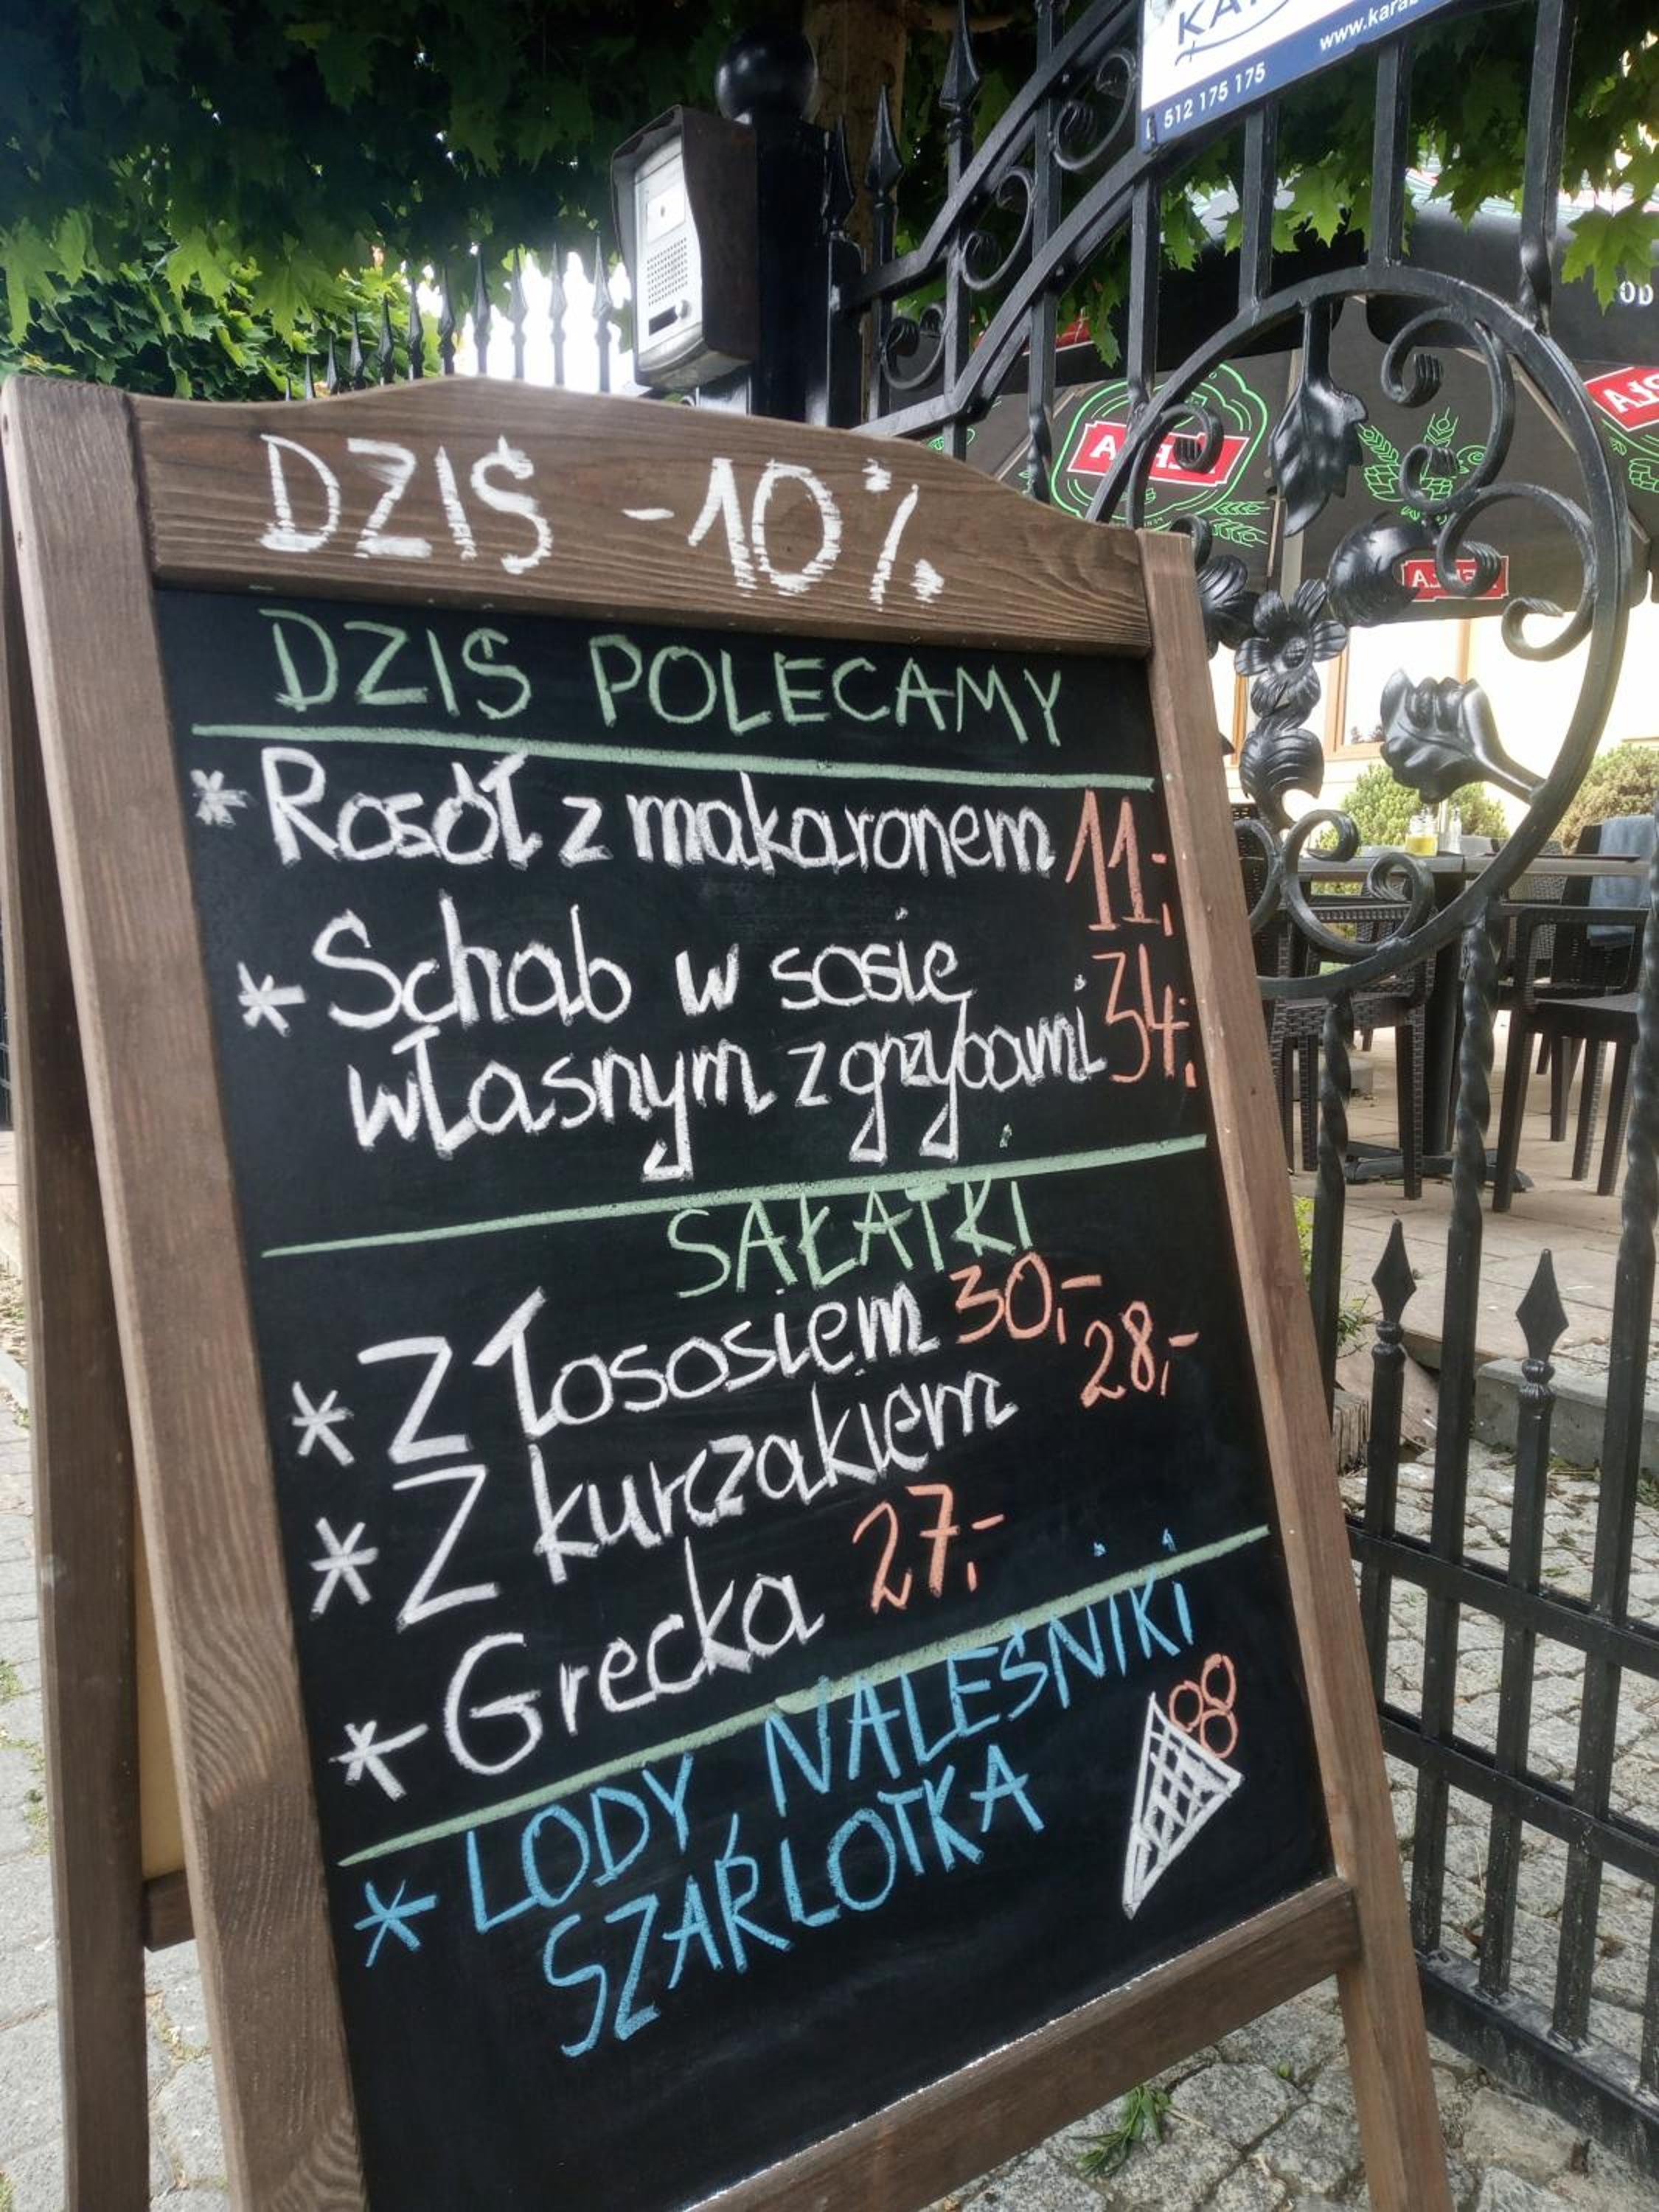 KA
www.kara
512 175 175
OD
DZIŚ -10%
DZIŚ POLECAMY
* Rosół z makaronem 11,-
* Schab w sosie
własnym z grzybami 34,-
SAŁATKI
* Z łososiem 30,-
* Z kurczakiem 28,-
* Grecka 27,-
* LODY, NALEŚNIKI
SZARLOTKA